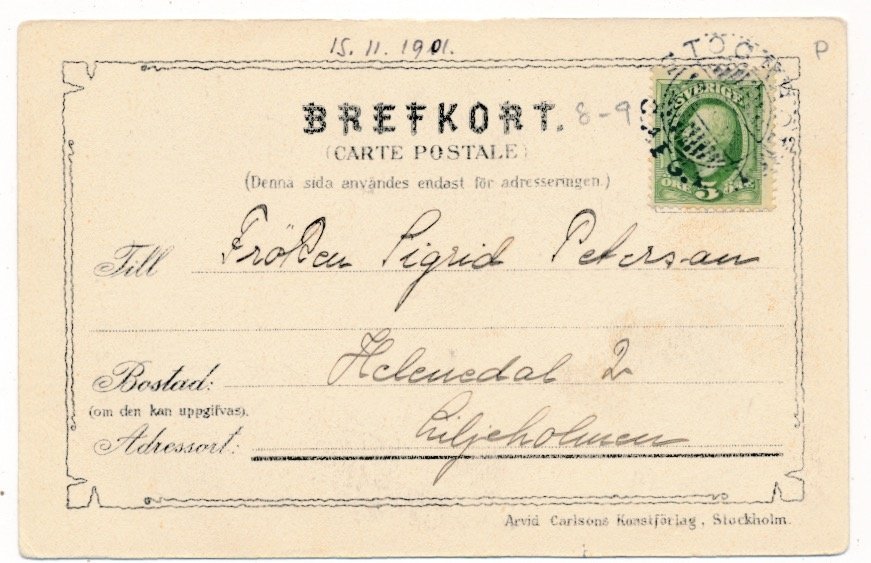 15. 11. 1901.
P
BREFKORT.
8-9
(CARTE POSTALE)
(Denna sida användes endast för adresseringen.)
SVERIGE
ÖRE 5 ÖRE
Till Fröken Sigrid Peterson
Bostad: Helenedal 2
(om den kan uppgifvas).
Adressort: Liljeholmen
Arvid Carlsons Konstförlag, Stockholm.